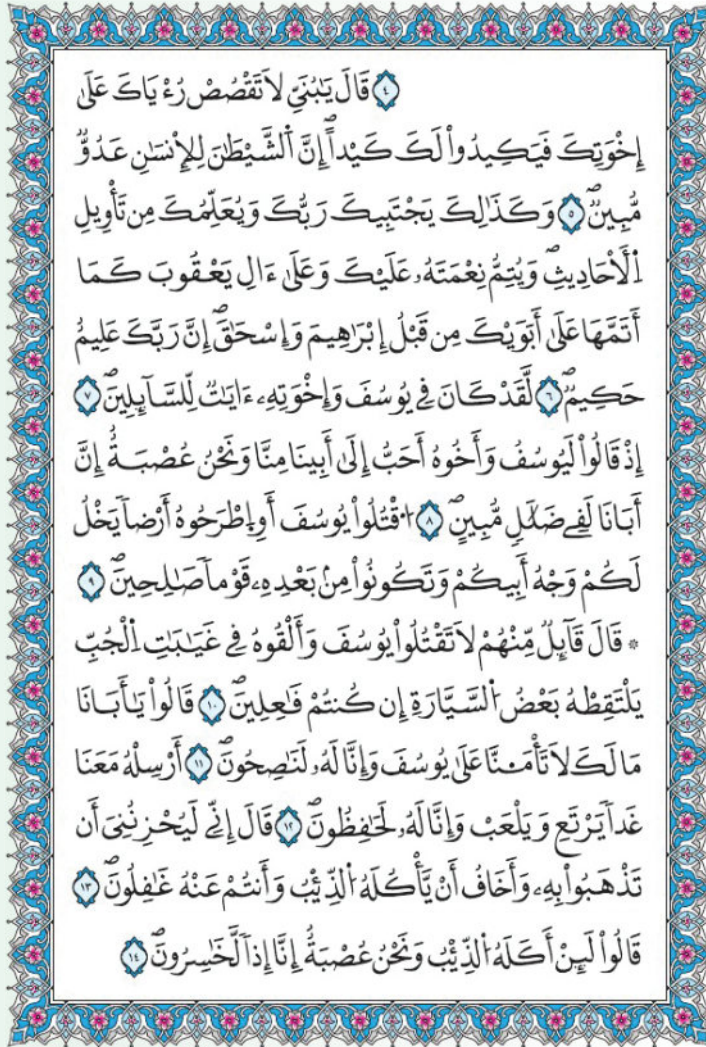 ﴿٤﴾ قَالَ يَٰبُنَيِّ لَا تَقْصُصْ رُءْيَاكَ عَلَىٰ
إِخْوَتِكَ فَيَكِيدُواْ لَكَ كَيْداًۖ إِنَّ اَ۬لشَّيْطَٰنَ لِلْإِنسَٰنِ عَدُوّٞ
مُّبِينٞۖ ﴿٥﴾ وَكَذَٰلِكَ يَجْتَبِيكَ رَبُّكَ وَيُعَلِّمُكَ مِن تَأْوِيلِ
اِ۬لْأَحَادِيثِۖ وَيُتِمُّ نِعْمَتَهُۥ عَلَيْكَ وَعَلَىٰ ءَالِ يَعْقُوبَ كَمَا
أَتَمَّهَا عَلَىٰ أَبَوَيْكَ مِن قَبْلُ إِبْرَٰهِيمَ وَإِسْحَٰقَۖ إِنَّ رَبَّكَ عَلِيمٌ
حَكِيمٞۖ ﴿٦﴾ لَّقَدْ كَانَ فِے يُوسُفَ وَإِخْوَتِهِۦ ءَايَٰتٞ لِّلسَّآئِلِينَۖ ﴿٧﴾
إِذْ قَالُواْ لَيُوسُفُ وَأَخُوهُ أَحَبُّ إِلَىٰ أَبِينَا مِنَّا وَنَحْنُ عُصْبَةٌ إِنَّ
أَبَانَا لَفِے ضَلَٰلٖ مُّبِينٍۖ ﴿٨﴾ اُ۟قْتُلُواْ يُوسُفَ أَوِ اِ۪طْرَحُوهُ أَرْضاٗ يَخْلُ
لَكُمْ وَجْهُ أَبِيكُمْ وَتَكُونُواْ مِنۢ بَعْدِهِۦ قَوْماٗ صَٰلِحِينَۖ ﴿٩﴾
۞ قَالَ قَآئِلٞ مِّنْهُمْ لَا تَقْتُلُواْ يُوسُفَ وَأَلْقُوهُ فِے غَيَٰبَتِ اِ۬لْجُبِّ
يَلْتَقِطْهُ بَعْضُ اُ۬لسَّيَّارَةِ إِن كُنتُمْ فَٰعِلِينَۖ ﴿١٠﴾ قَالُواْ يَٰأَبَانَا
مَا لَكَ لَا تَأْمَ۬نَّا عَلَىٰ يُوسُفَ وَإِنَّا لَهُۥ لَنَٰصِحُونَۖ ﴿١١﴾ أَرْسِلْهُ مَعَنَا
غَداٗ يَرْتَعِ وَيَلْعَبْ وَإِنَّا لَهُۥ لَحَٰفِظُونَۖ ﴿١٢﴾ قَالَ إِنِّے لَيُحْزِنُنِيَ أَن
تَذْهَبُواْ بِهِۦ وَأَخَافُ أَنْ يَّأْكُلَهُ اُ۬لذِّئْبُ وَأَنتُمْ عَنْهُ غَٰفِلُونَۖ ﴿١٣﴾
قَالُواْ لَئِنْ أَكَلَهُ اُ۬لذِّئْبُ وَنَحْنُ عُصْبَةٌ إِنَّا إِذاٗ لَّخَٰسِرُونَۖ ﴿١٤﴾